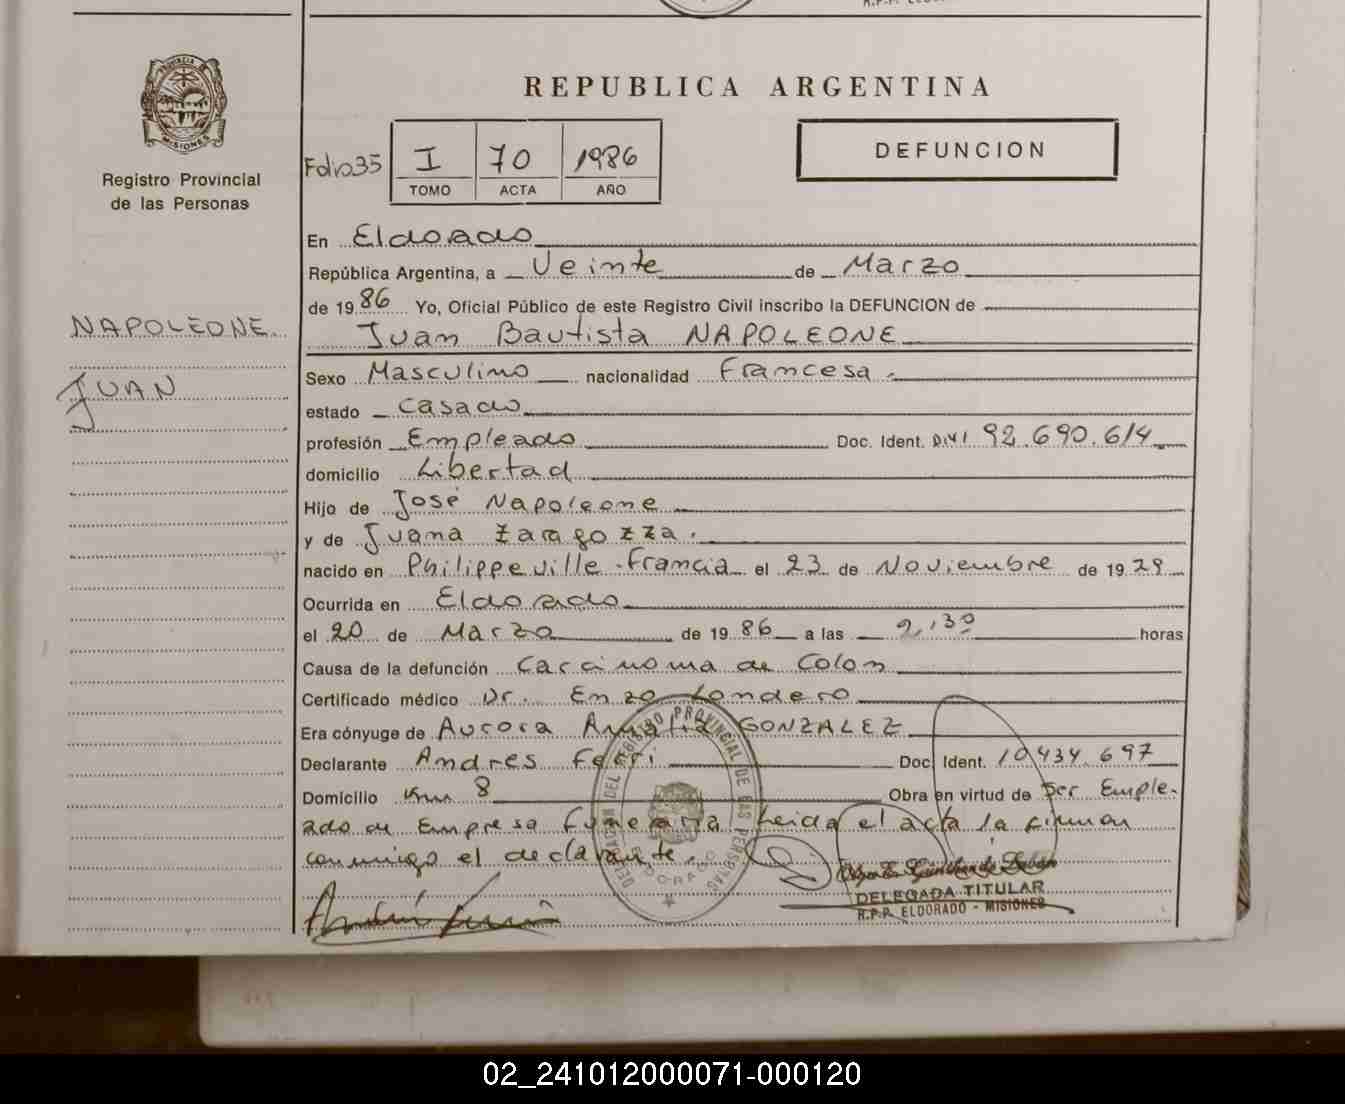 R.P.P.
REPUBLICA ARGENTINA
PROVINCIA DE
MISIONES
Registro Provincial
de las Personas
Folio 35
I 70 1986
TOMO ACTA AÑO
DEFUNCION
En Eldorado
República Argentina, a Veinte de Marzo
de 1986 Yo, Oficial Público de este Registro Civil inscribo la DEFUNCION de
Juan Bautista NAPOLEONE
NAPOLEONE.
JUAN
Sexo Masculino nacionalidad Francesa.
estado Casado
profesión Empleado Doc. Ident. D.N.I 92.690.614
domicilio Libertad
Hijo de José Napoleone
y de Juana Zaragozza.
nacido en Philippeville-Francia el 23 de Noviembre de 1929
Ocurrida en Eldorado
el 20 de Marzo de 1986 a las 2,30 horas
Causa de la defunción Carcinoma de Colon
Certificado médico Dr. Enzo Londero
Era cónyuge de Aurora Amalia GONZALEZ
Declarante Andres Doc. Ident. 10434.697
Domicilio Km 8 Obra en virtud de ser Emple-
ado de Empresa Funeraria Leida el acta la firman
conmigo el declarante.
DELEGACION DEL REGISTRO PROVINCIAL DE LAS PERSONAS
ELDORADO
DELEGADA TITULAR
R.P.P. ELDORADO - MISIONES
02_241012000071-000120